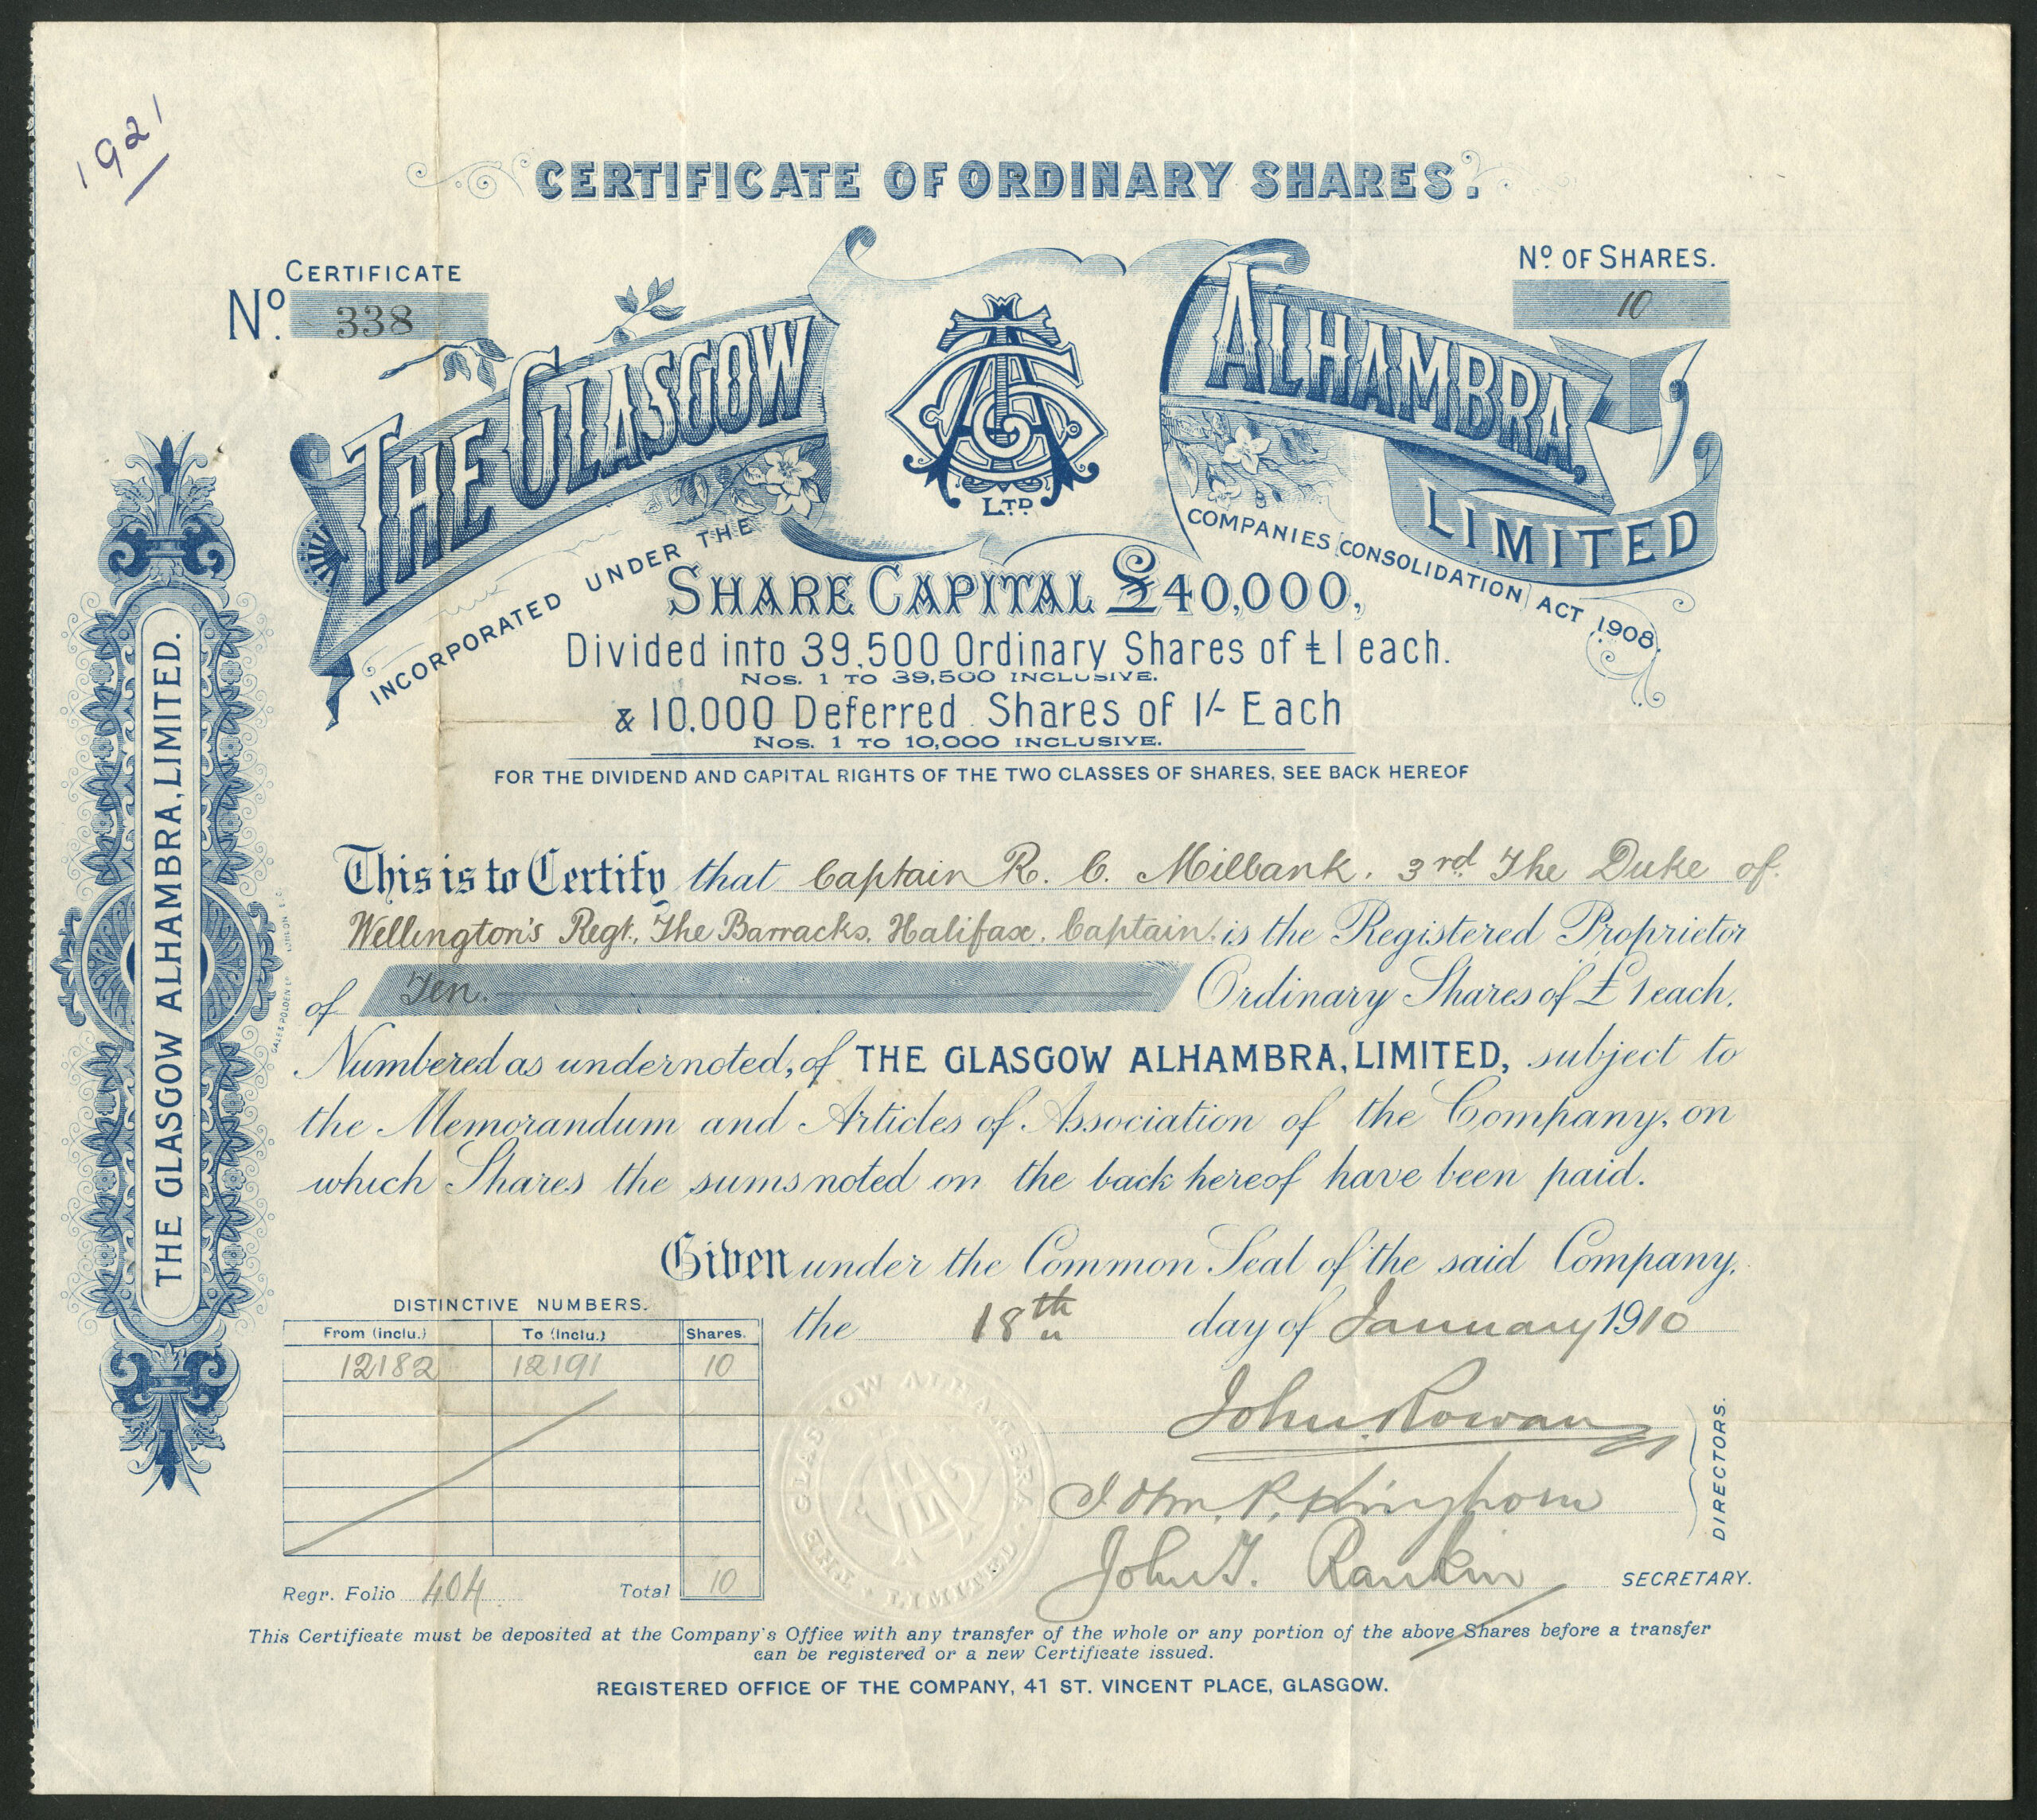 1921
CERTIFICATE OF ORDINARY SHARES.
CERTIFICATE
No. 338
No. OF SHARES.
10
THE GLASGOW ALHAMBRA, LIMITED
LTD
INCORPORATED UNDER THE COMPANIES CONSOLIDATION ACT 1908.
SHARE CAPITAL £40,000,
Divided into 39,500 Ordinary Shares of £1 each.
NOS. 1 TO 39,500 INCLUSIVE.
& 10,000 Deferred Shares of 1/- Each
NOS. 1 TO 10,000 INCLUSIVE.
FOR THE DIVIDEND AND CAPITAL RIGHTS OF THE TWO CLASSES OF SHARES, SEE BACK HEREOF
THE GLASGOW ALHAMBRA, LIMITED.
This is to Certify that Captain R. C. Milbank. 3rd. The Duke of
Wellington's Regt., The Barracks, Halifax, Captain, is the Registered Proprietor
of Ten. Ordinary Shares of £1 each,
Numbered as undernoted, of THE GLASGOW ALHAMBRA, LIMITED, subject to
the Memorandum and Articles of Association of the Company, on
which Shares the sums noted on the back hereof have been paid.
Given under the Common Seal of the said Company,
the 18th day of January 1910
DISTINCTIVE NUMBERS.
From (inclu.) To (Inclu.) Shares.
12182 12191 10
Regr. Folio 404 Total 10
THE GLASGOW ALHAMBRA LIMITED
John Rowan
John R. Kinghorn
DIRECTORS.
John T. Rankin SECRETARY.
This Certificate must be deposited at the Company's Office with any transfer of the whole or any portion of the above Shares before a transfer
can be registered or a new Certificate issued.
REGISTERED OFFICE OF THE COMPANY, 41 ST. VINCENT PLACE, GLASGOW.